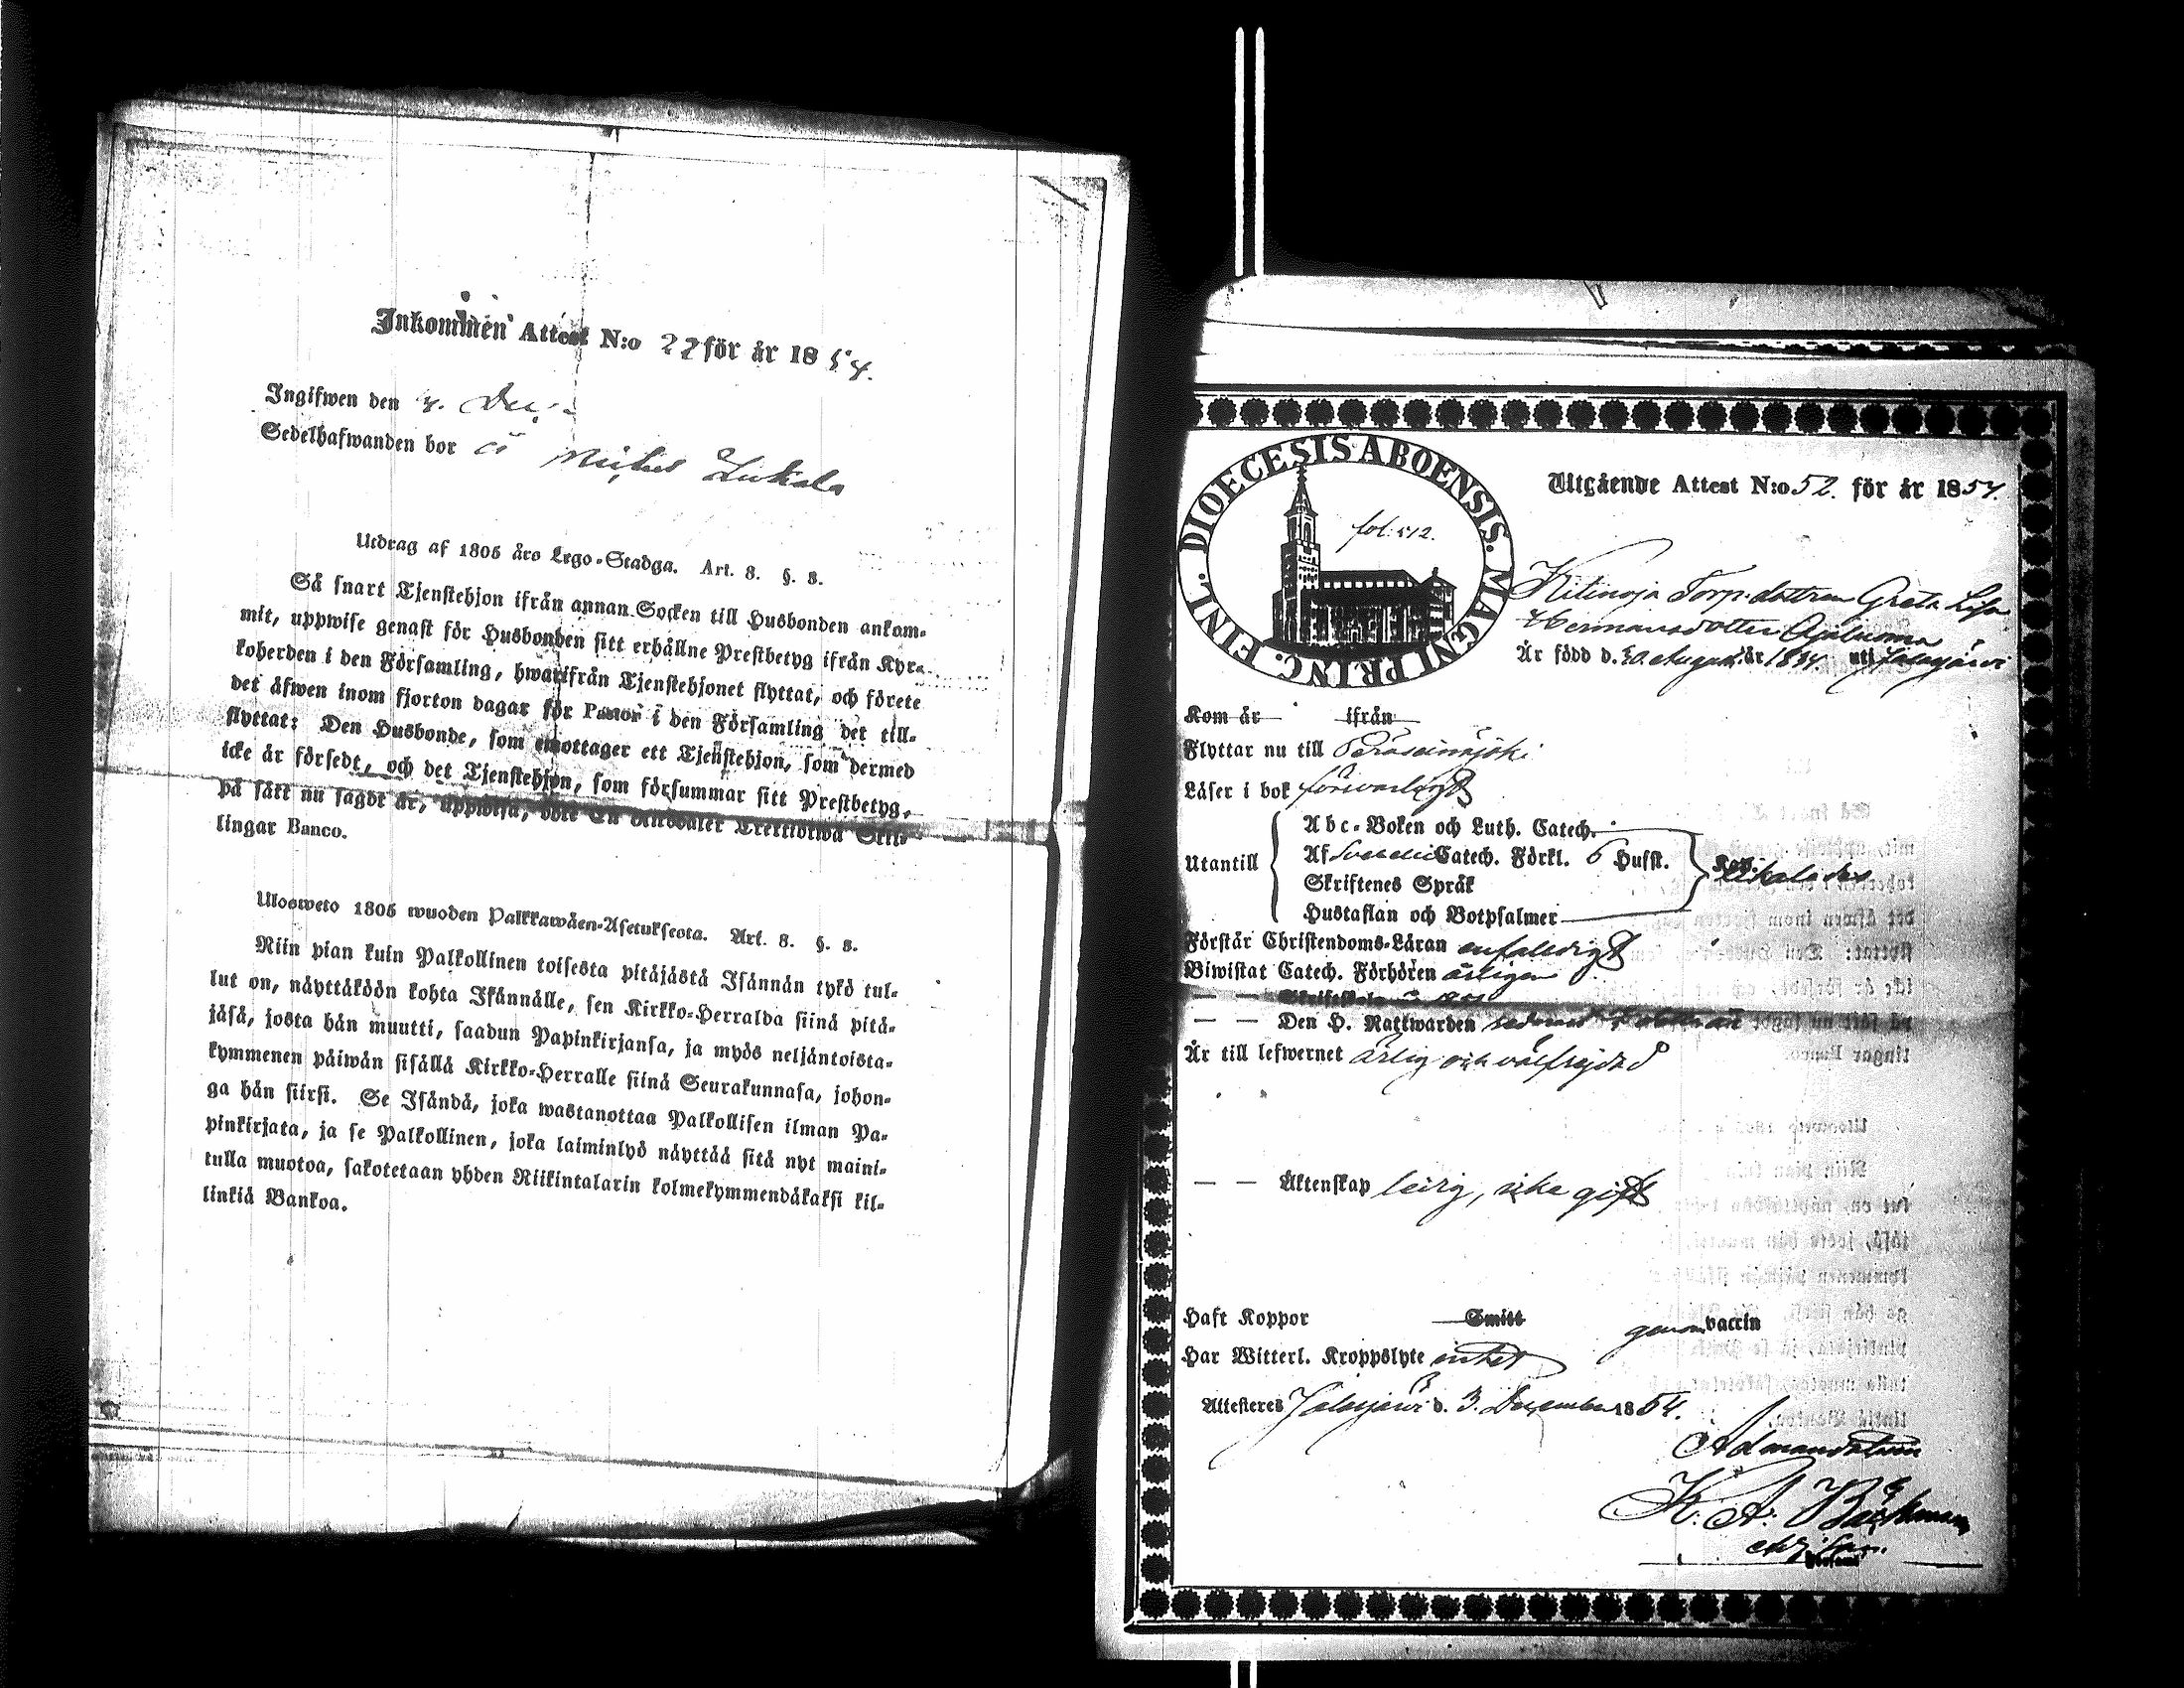 Inkommen Attest N:o 22 för år 1854.
Ingifwen den 4. Dec.
Sedelhafwanden bor å Lukala
Utdrag af 1805 års Lego-Stadga. Art. 8. §. 8.
Så snart Tjenstehjon ifrån annan Socken till Husbonden ankom-
mit, uppwise genast för Husbonden sitt erhållne Prestbetyg ifrån Kyr-
koherden i den Församling, hwarifrån Tjenstehjonet flyttat, och förete
det äfwen inom fjorton dagar för Pastor i den Församling det till-
flyttat: Den Husbonde, som emottager ett Tjenstehjon, som dermed
icke är försedt, och det Tjenstehjon, som försummar sitt Prestbetyg,
på sätt nu sagdt är, uppwisa, böte En Riksdaler Trettiotwå Skil-
lingar Banco.
Ulosweto 1805 wuoden Palkkawäen-Asetuksesta. Art. 8. §. 8.
Niin pian kuin Palkollinen toisesta pitäjästä Isännän tykö tul-
lut on, näyttäköön kohta Isännälle, sen Kirkko-Herralda siinä pitä-
jäsä, josta hän muutti, saadun Papinkirjansa, ja myös neljäntoista-
kymmenen päiwän sisällä Kirkko-Herralle siinä Seurakunnasa, johon-
ga hän siirsi. Se Isändä, joka wastanottaa Palkollisen ilman Pa-
pinkirjata, ja se Palkollinen, joka laiminlyö näyttää sitä nyt maini-
tulla muotoa, sakotetaan yhden Riikintalarin kolmekymmendäkaksi kil-
linkiä Bankoa.
DIOECESIS ABOENSIS. MAGNI PRINC. FINL.
fol: 512.
Utgående Attest N:o 52. för år 1854.
Kitinoja Torp. dottren Greta Lisa
Hermansdotter Ojaluoma
Är född d. 30 August. år 1834. uti Jalasjärvi
Kom år ifrån
Flyttar nu till Peräseinäjoki
Läser i bok försvarligt
Utantill
Abc-Boken och Luth. Catech.
Af Svebelii Catech. Förkl. 6 Hufst.
Skriftenes Språk
Hustaflan och Botpsalmer
Förstår Christendoms-Läran enfalldigt
Biwistat Catech. Förhören årligen
— — Skriftskola 1851
— — Den H. Nattwarden sednast
Är till lefwernet ärlig och välfrejdad
— — Äktenskap ledig, icke gift
Haft Koppor Smitt genom vaccin
Har Witterl. Kroppslyte intet
Attesteres Jalasjärvi d. 3. December 1854.
Ad mandatum
K. A. Bäckman